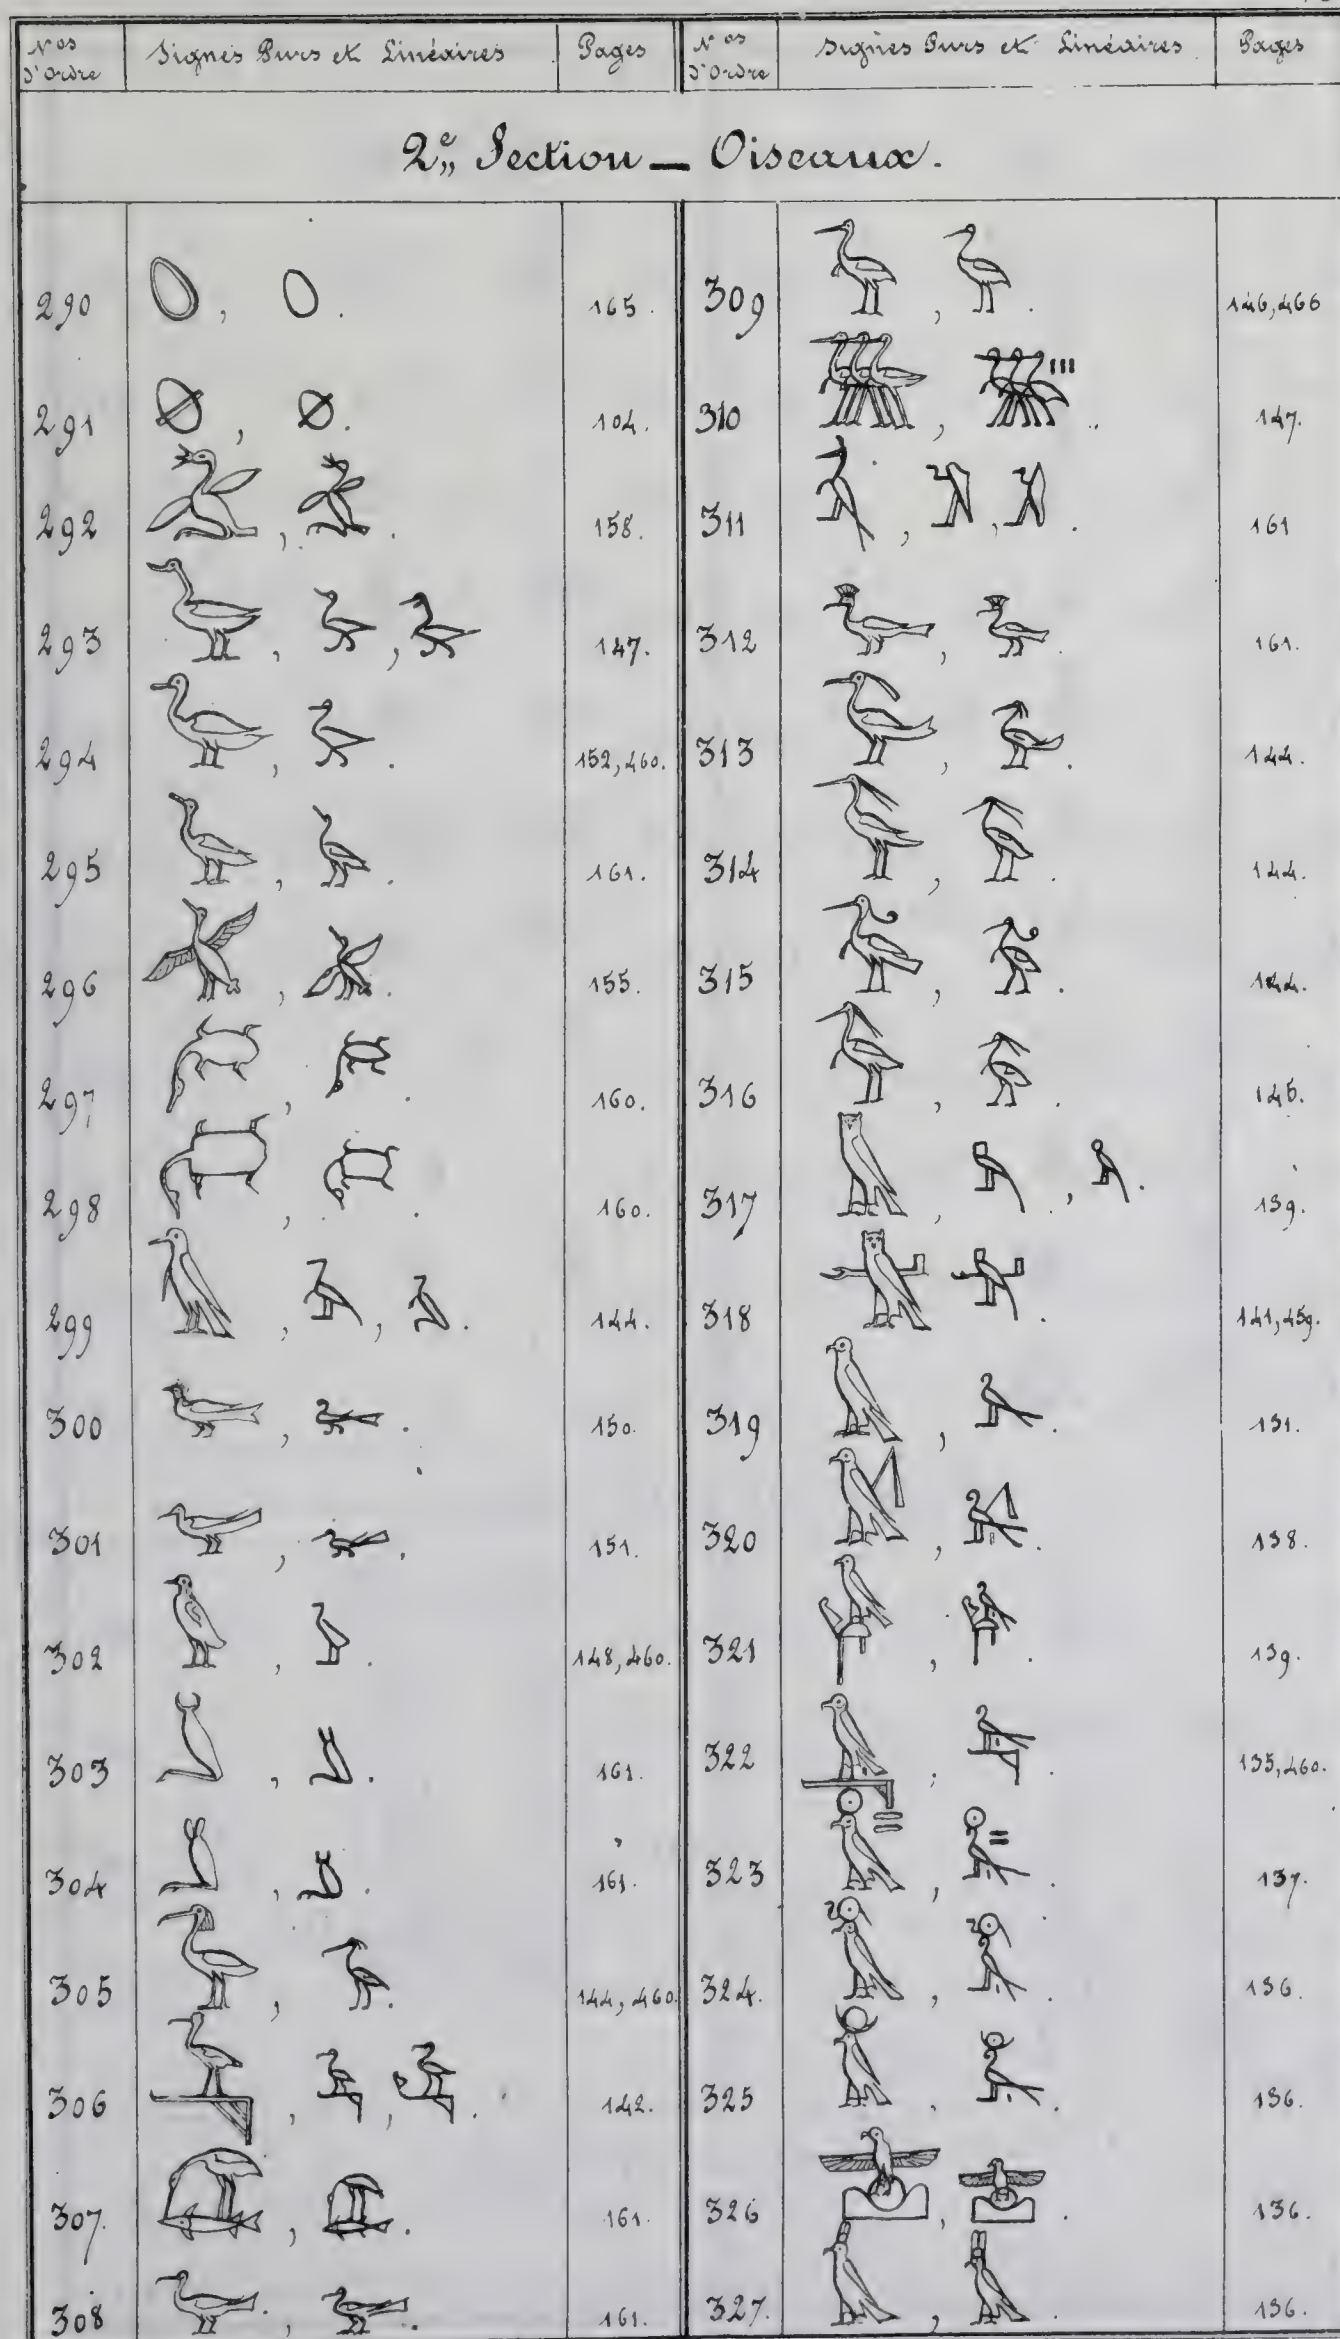 Nos d'Ordre | Signes Purs et Linéaires | Pages | Nos d'Ordre | Signes Purs et Linéaires | Pages
2e,, Section — Oiseaux.
290 | 165. | 309 | 146,466
291 | 104. | 310 | 147.
292 | 158. | 311 | 161
293 | 147. | 312 | 161.
294 | 152,460. | 313 | 144.
295 | 161. | 314 | 144.
296 | 155. | 315 | 144.
297 | 160. | 316 | 145.
298 | 160. | 317 | 139.
299 | 144. | 318 | 141,459.
300 | 150. | 319 | 131.
301 | 151. | 320 | 138.
302 | 148,460. | 321 | 139.
303 | 161. | 322 | 135,460.
304 | 161. | 323 | 137.
305 | 144,460. | 324. | 136.
306 | 142. | 325 | 136.
307. | 161. | 326 | 136.
308 | 161. | 327. | 136.